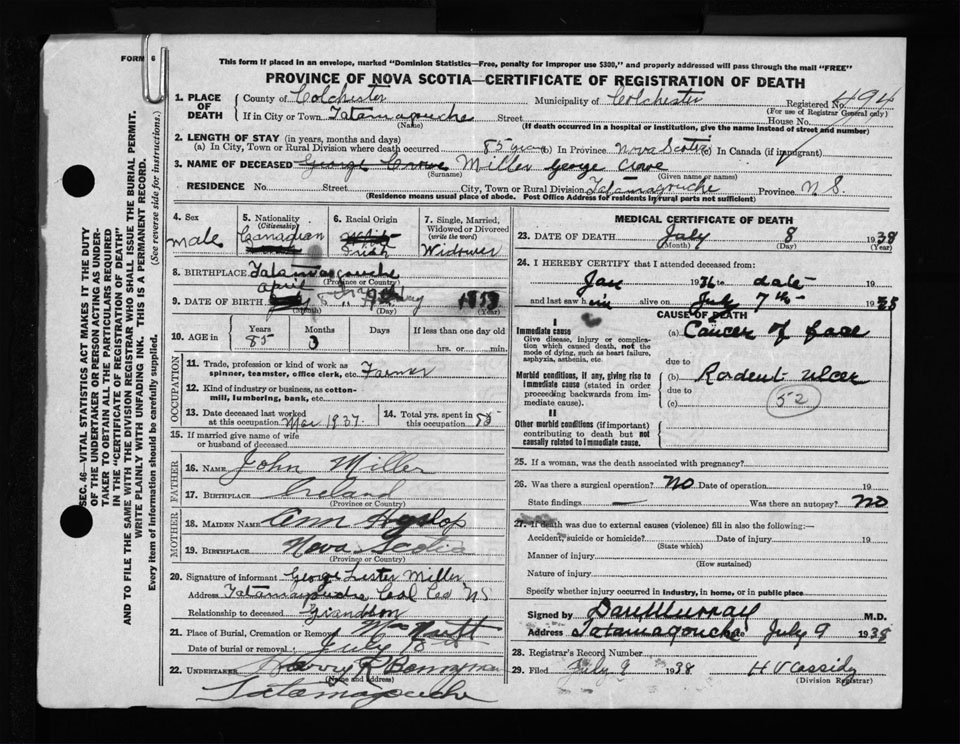 FORM 6
This form if placed in an envelope, marked "Dominion Statistics—Free, penalty for improper use $300," and properly addressed will pass through the mail "FREE"
PROVINCE OF NOVA SCOTIA—CERTIFICATE OF REGISTRATION OF DEATH
SEC. 46—VITAL STATISTICS ACT MAKES IT THE DUTY
OF THE UNDERTAKER OR PERSON ACTING AS UNDER-
TAKER TO OBTAIN ALL THE PARTICULARS REQUIRED
IN THE "CERTIFICATE OF REGISTRATION OF DEATH"
AND TO FILE THE SAME WITH THE DIVISION REGISTRAR WHO SHALL ISSUE THE BURIAL PERMIT.
WRITE PLAINLY WITH UNFADING INK. THIS IS A PERMANENT RECORD.
Every item of information should be carefully supplied. (See reverse side for instructions.)
1. PLACE OF DEATH
County of Colchester Municipality of Colchester Registered No. 494
(For use of Registrar General only)
If in City or Town Tatamagouche Street House No.
(Name) (If death occurred in a hospital or institution, give the name instead of street and number)
2. LENGTH OF STAY (in years, months and days)
(a) In City, Town or Rural Division where death occurred 85 years (b) In Province Nova Scotia (c) In Canada (if immigrant)
3. NAME OF DECEASED George Crowe Miller George
(Surname) (Given name or names)
RESIDENCE No. Street City, Town or Rural Division Tatamagouche Province N.S.
(Residence means usual place of abode. Post Office Address for residents in rural parts not sufficient)
4. Sex
male
5. Nationality
(Citizenship)
Canadian
6. Racial Origin
Irish
7. Single, Married,
Widowed or Divorced
(write the word)
Widower
8. BIRTHPLACE Tatamagouche
(Province or Country)
9. DATE OF BIRTH April
(Month) (Day) (Year)
10. AGE in
Years
85
Months
3
Days
If less than one day old
hrs. or min.
OCCUPATION
11. Trade, profession or kind of work as
spinner, teamster, office clerk, etc. Farmer
12. Kind of industry or business, as cotton-
mill, lumbering, bank, etc.
13. Date deceased last worked
at this occupation 1937
14. Total yrs. spent in
this occupation
15. If married give name of wife
or husband of deceased
FATHER
16. NAME John Miller
17. BIRTHPLACE Ireland
(Province or Country)
MOTHER
18. MAIDEN NAME Ann Hyslop
19. BIRTHPLACE Nova Scotia
(Province or Country)
20. Signature of informant George Lester Miller
Address Tatamagouche Col Co NS
Relationship to deceased Grandson
21. Place of Burial, Cremation or Removal
Date of burial or removal July
22. UNDERTAKER Harry R
(Name and address)
Tatamagouche
MEDICAL CERTIFICATE OF DEATH
23. DATE OF DEATH July 8 1938
(Month) (Day) (Year)
24. I HEREBY CERTIFY that I attended deceased from:
Jan 1936 to date
and last saw him alive on July 7th 1938
CAUSE OF DEATH
I
Immediate cause
Give disease, injury or complica-
tion which caused death, not the
mode of dying, such as heart failure,
asphyxia, asthenia, etc.
(a) Cancer of face
due to
Morbid conditions, if any, giving rise to
immediate cause (stated in order
proceeding backwards from im-
mediate cause).
(b) Rordent ulcer
due to
(c)
52
II
Other morbid conditions (if important)
contributing to death but not
causally related to immediate cause.
25. If a woman, was the death associated with pregnancy?
26. Was there a surgical operation? NO Date of operation 19
State findings — Was there an autopsy? NO
27. If death was due to external causes (violence) fill in also the following:—
Accident, suicide or homicide? Date of injury 19
(State which)
Manner of injury
(How sustained)
Nature of injury
Specify whether injury occurred in industry, in home, or in public place
Signed by Dan Murray M.D.
Address Tatamagouche July 9 1938
28. Registrar's Record Number
29. Filed July 9 1938 H V Cassidy
(Division Registrar)